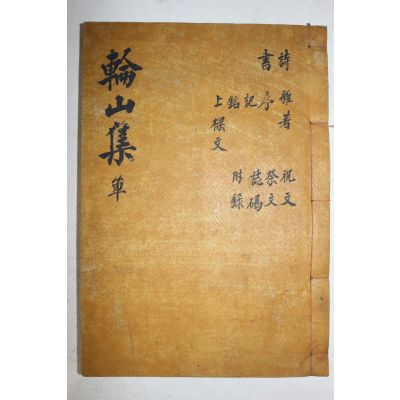 詩 雜著 祝文
書 序 祭文
記 誌碣
銘 附錄
上樑文
輪山集 單